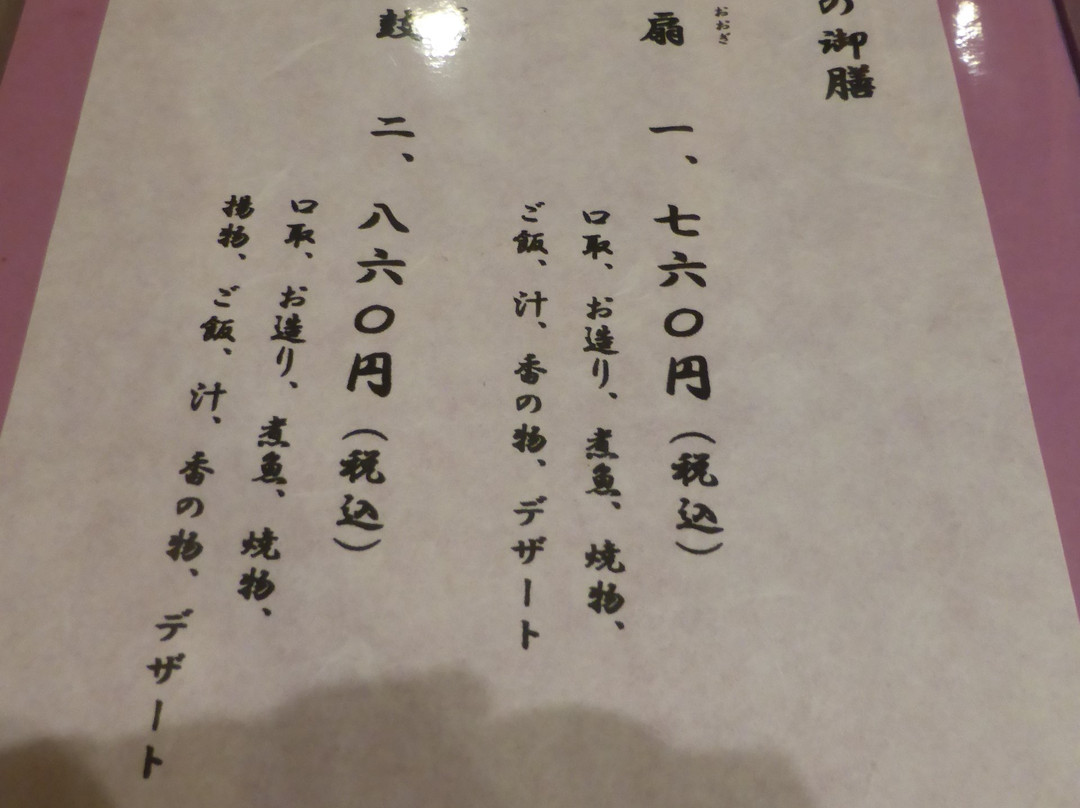 の御膳
おおぎ
扇 一、七六〇円(税込)
口取、お造り、煮魚、焼物、
ご飯、汁、香の物、デザート
鼓 二、八六〇円(税込)
口取、お造り、煮魚、焼物、
揚物、ご飯、汁、香の物、デザート